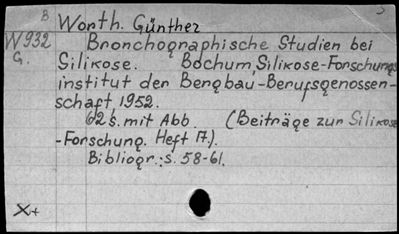 B
Worth. Günther
W 932
G.
Bronchographische Studien bei
Silikose. Bochum, Silikose-Forschungs
institut der Bergbau-Berufsgenossen-
schaft 1952.
62 s. mit Abb (Beiträge zur Silikose
-Forschung. Heft 17.).
Bibliogr.: s. 58-61.
X+